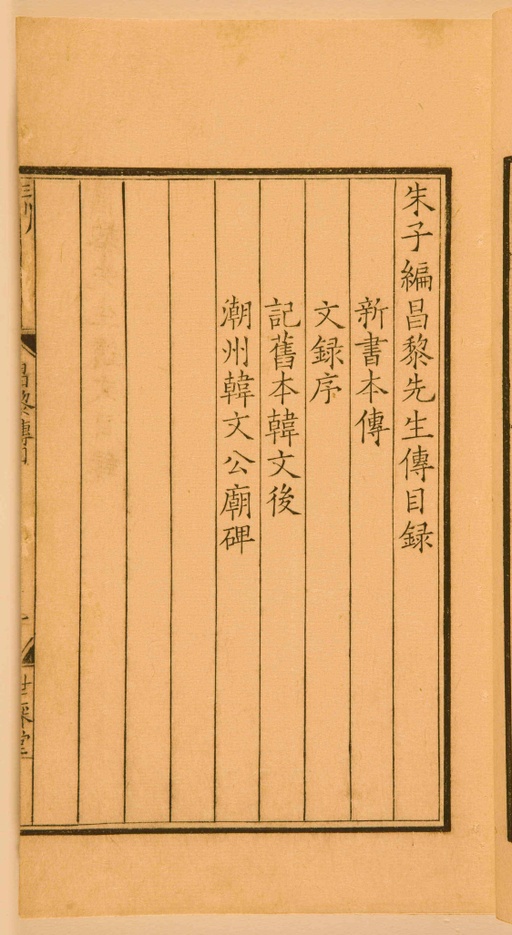 朱子編昌黎先生傳目録
新書本傳
文録序
記舊本韓文後
潮州韓文公廟碑
昌黎傳目
世綵堂